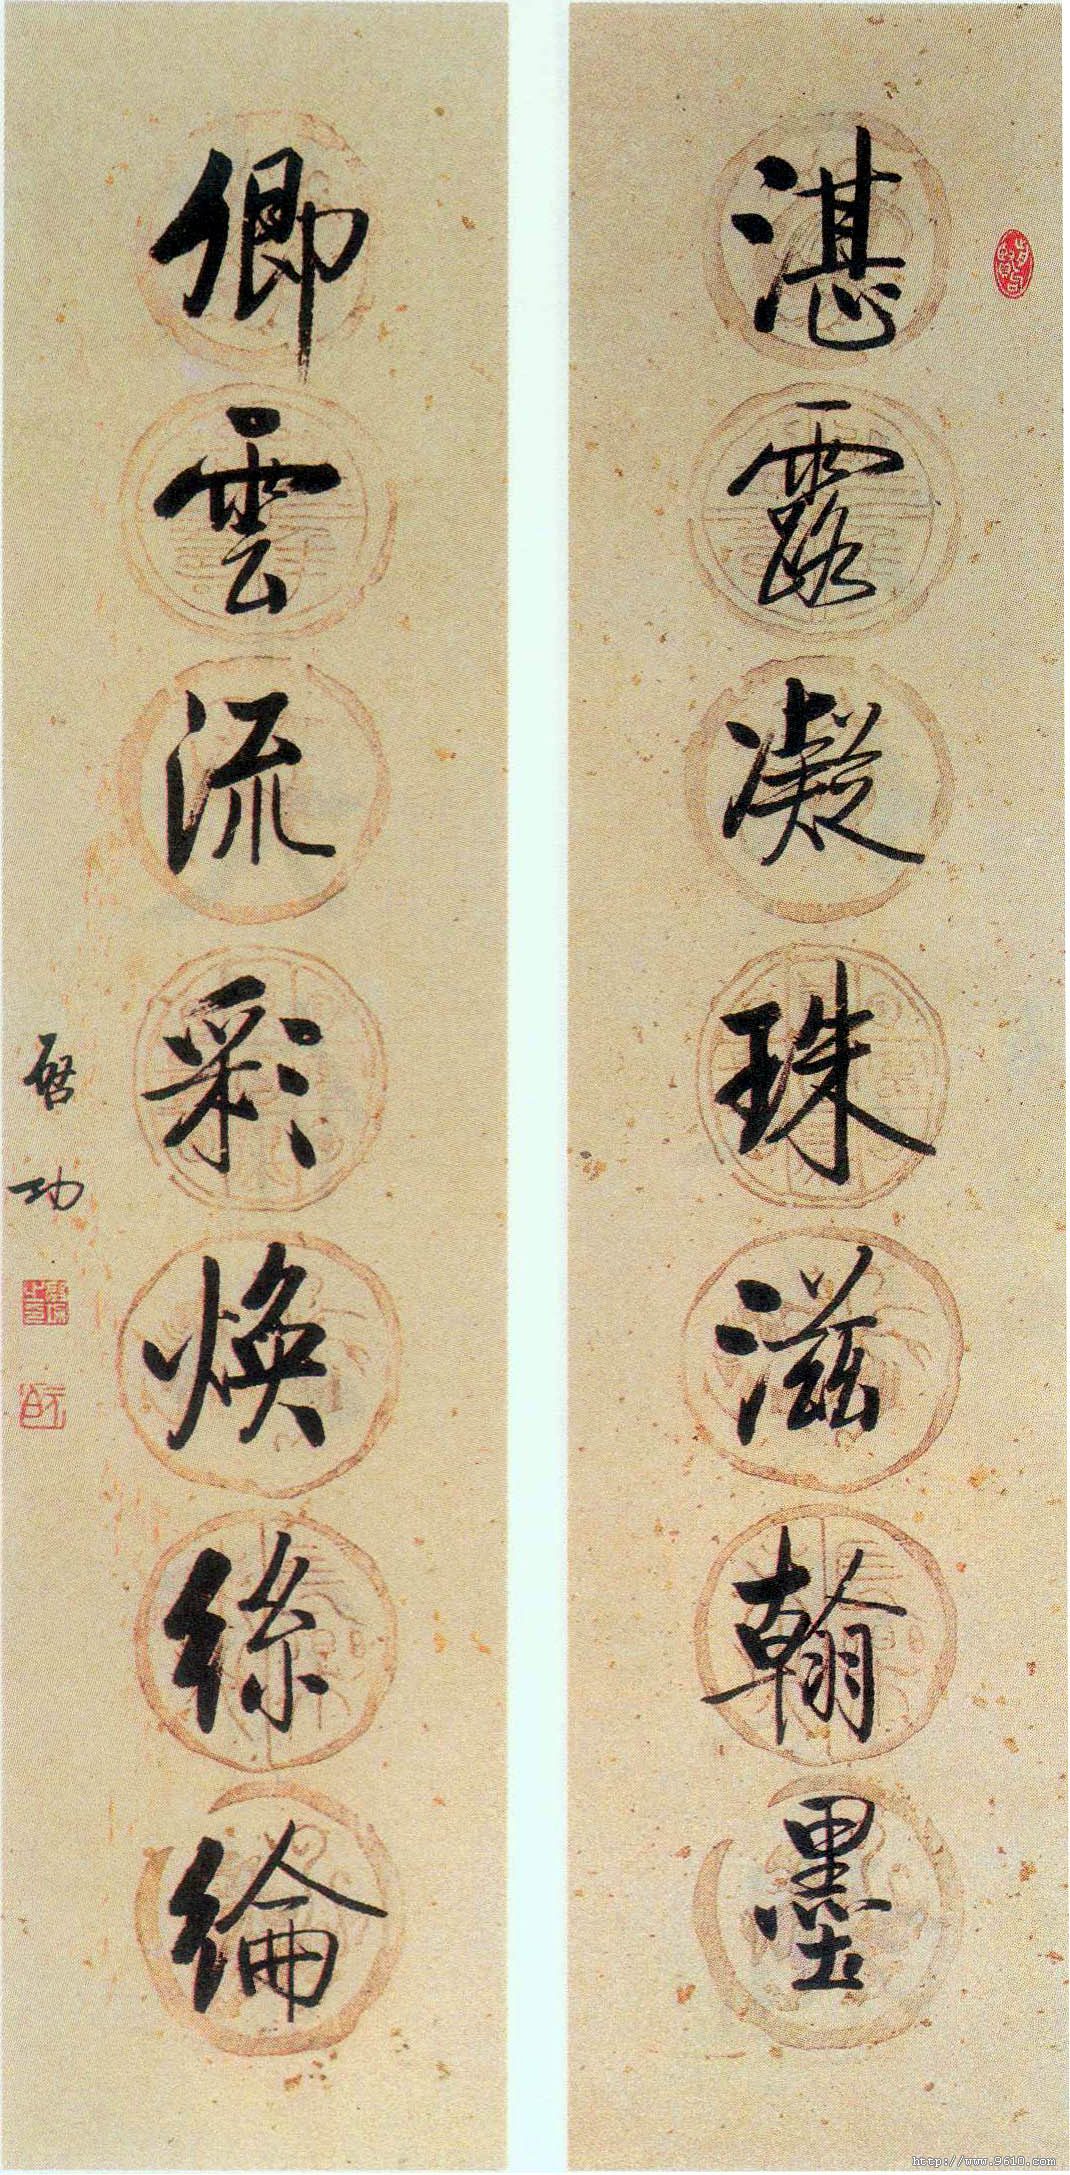 湛露凝珠滋翰墨
卿雲流彩煥絲綸
啓功
http://www.9610.com